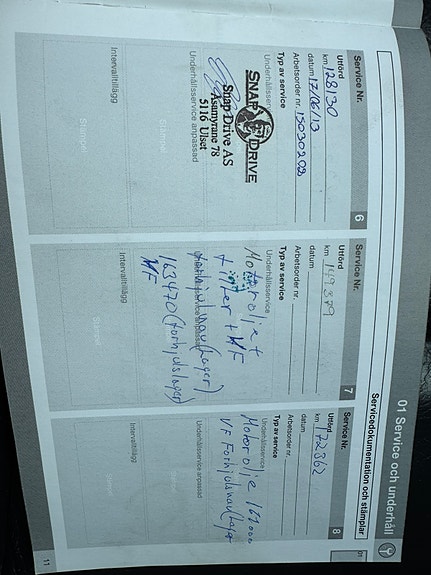 01 Service och underhåll
Servicedokumentation och stämplar
01
Service Nr.
6
Utförd
km 128130
datum 17/06/13
Arbetsorder nr. 15030202
Typ av service
Underhållsservice
SNAP DRIVE
Snap Drive AS
Åsamyrane 78
5116 Ulset
Underhållsservice anpassad
Intervalltillägg
Stämpel
Service Nr.
7
Utförd
km 149379
datum
Arbetsorder nr.
Typ av service
Underhållsservice
Motorolje +
filter + HF
Underhållsservice anpassad
(Lager)
163470 (forhjulslager)
HF
Intervalltillägg
Service Nr.
8
Utförd
km 172362
datum
Arbetsorder nr.
Typ av service
Underhållsservice
Motorolje 161000
VF Forhjulsnav (Lager
Underhållsservice anpassad
Intervalltillägg
11